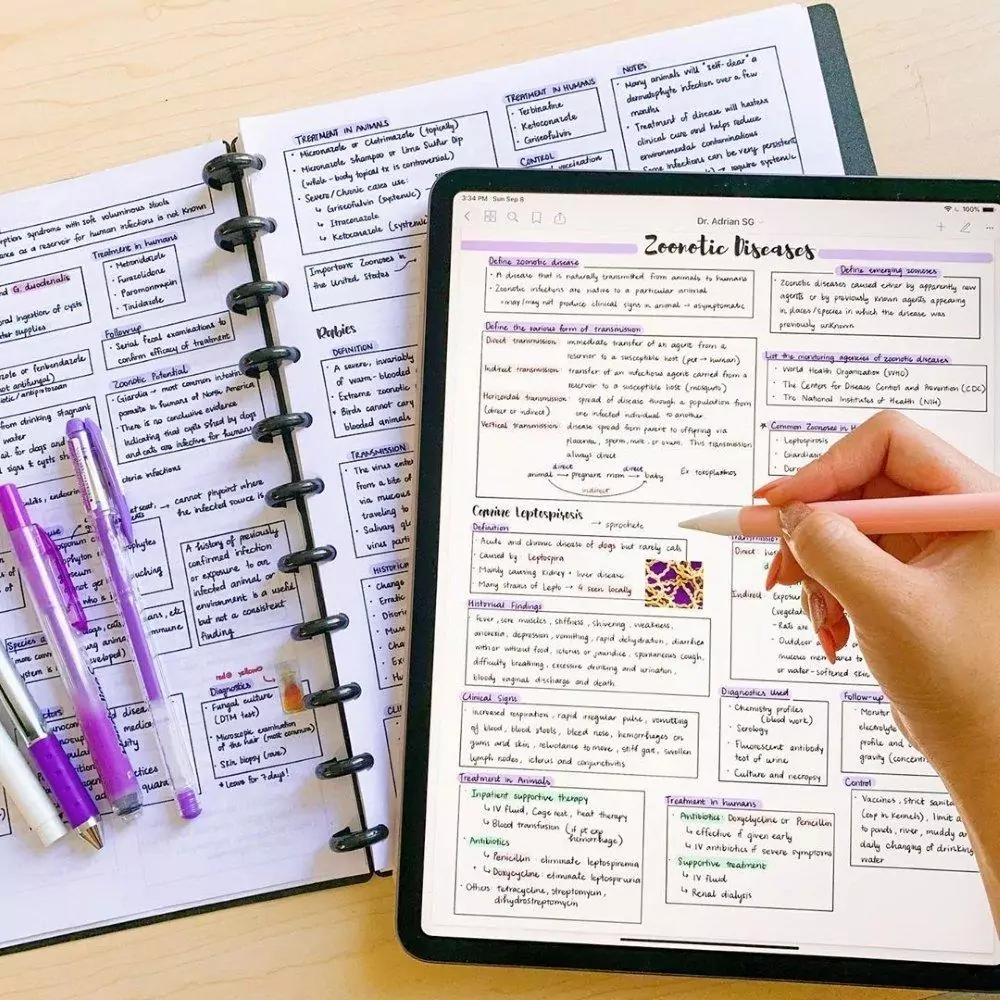 rption syndrome with soft voluminous stools
as a reservoir for human infections is not known
Treatment in humans
• Metronidazole
• Furazolidone
• Paromomycin
• Tinidazole
nd G. duodenalis
ingestion of cysts
supplies
Followup
• Serial fecal examinations to
confirm efficacy of treatment
or fenbendazole
not antifungal)
Zoonotic Potential
• Giardia → most common intestinal
parasite in humans of North America
• There is no conclusive evidence
indicating that cysts shed by dogs
and cats are infective for humans
from drinking stagnant
water
cannot pinpoint where
the infected source is
A history of previously
confirmed infection
or exposure to an
infected animal or
environment is a useful
but not a consistent
finding
red @ yellow
Diagnostics
• Fungal culture
(DTM test)
• Microscopic examination
of the hair (most common)
• Skin biopsy (rare)
* Leave for 7 days!
TREATMENT IN ANIMALS
• Miconazole or Clotrimazole (topically)
• Miconazole shampoo or Lime Sulfur Dip
(whole-body topical tx is controversial)
• Severe/Chronic cases use:
↳ Griseofulvin (systemic)
↳ Itraconazole
↳ Ketoconazole (systemic
Important Zoonoses in
the United States
TREATMENT IN HUMANS
• Terbinafine
• Ketoconazole
• Griseofulvin
CONTROL
vaccination
NOTES
• Many animals will "self-clear" a
dermatophyte infection over a few
months
• Treatment of disease will hasten
clinical cure and helps reduce
environmental contaminations
• Some infections can be very persistent
require systemic
Rabies
DEFINITION
• A severe, invariably
of warm-blooded
• Extreme zoonotic
* Birds cannot carry
blooded animals
TRANSMISSION
• The virus enter
from a bite of
via mucous
traveling to
• Salivary gl
virus parti
HISTORICAL
3:34 PM Sun Sep 8
100%
Dr. Adrian SG
Zoonotic Diseases
Define zoonotic disease
• A disease that is naturally transmitted from animals to humans
• Zoonotic infections are native to a particular animal
• may/may not produce clinical signs in animal → asymptomatic
Define emerging zoonoses
• Zoonotic diseases caused either by apparently new
agents or by previously known agents appearing
in places/species in which the disease was
previously unknown
Define the various form of transmission
Direct transmission: immediate transfer of an agent from a
reservoir to a susceptible host (pet → human)
Indirect transmission: transfer of an infectious agent carried from a
reservoir to a susceptible host (mosquito)
Horizontal transmission: spread of disease through a population from
(direct or indirect) one infected individual to another.
Vertical transmission: disease spread from parent to offspring via
placenta, sperm, milk, or ovum. This transmission
always direct
direct direct
animal → pregnant mom → baby Ex: toxoplasmos
indirect
List the monitoring agencies of zoonotic diseases
• World Health Organization (WHO)
• The Centers for Disease Control and Prevention (CDC)
• The National Institutes of Health (NIH)
* Common Zoonoses in H
• Leptospirosis
• Giardiasis
Canine Leptospirosis → spirochete
Definition
• Acute and chronic disease of dogs but rarely cats
• Caused by Leptospira
• Mainly causing kidney + liver disease
• Many strains of Lepto → 4 seen locally
Historical Findings
Fever, sore muscles, stiffness, shivering, weakness,
anorexia, depression, vomitting, rapid dehydration, diarrhea
with or without food, icterus or jaundice, spontaneous cough,
difficulty breathing, excessive drinking and urination,
bloody vaginal discharge and death.
Transmission
Direct:
Indirect: Exposu
(vegetat
- Rats are
- Outdoor
mucous membranes to
or water-softened skin
Clinical Signs
• increased respiration, rapid irregular pulse, vomitting
of blood, bloody stools, bloody nose, hemorrhages on
gums and skin, reluctance to move, stiff gait, swollen
lymph nodes, icterus and conjunctivitis
Diagnostics Used
• Chemistry profiles
(blood work)
• Serology
• Fluorescent antibody
test of urine
• Culture and necropsy
Follow-up
• Monitor
electrolyte
profile and
gravity (concent
Treatment in Animals
• Inpatient supportive therapy
↳ IV fluid, Cage rest, heat therapy
↳ Blood transfusion (if pt exp hemorrhage)
• Antibiotics
↳ Penicillin: eliminate leptospiremia
↳ Doxycycline: eliminate leptospiruria
• Others: tetracycline, streptomycin,
dihydrostreptomycin
Treatment in humans
• Antibiotics: Doxycycline or Penicillin
↳ effective if given early
↳ IV antibiotics if severe symptoms
• Supportive treatment
↳ IV fluid
↳ Renal dialysis
Control
• Vaccines, strict sanita
(esp in kennels), limit a
to ponds, river, muddy ar
daily changing of drinking
water